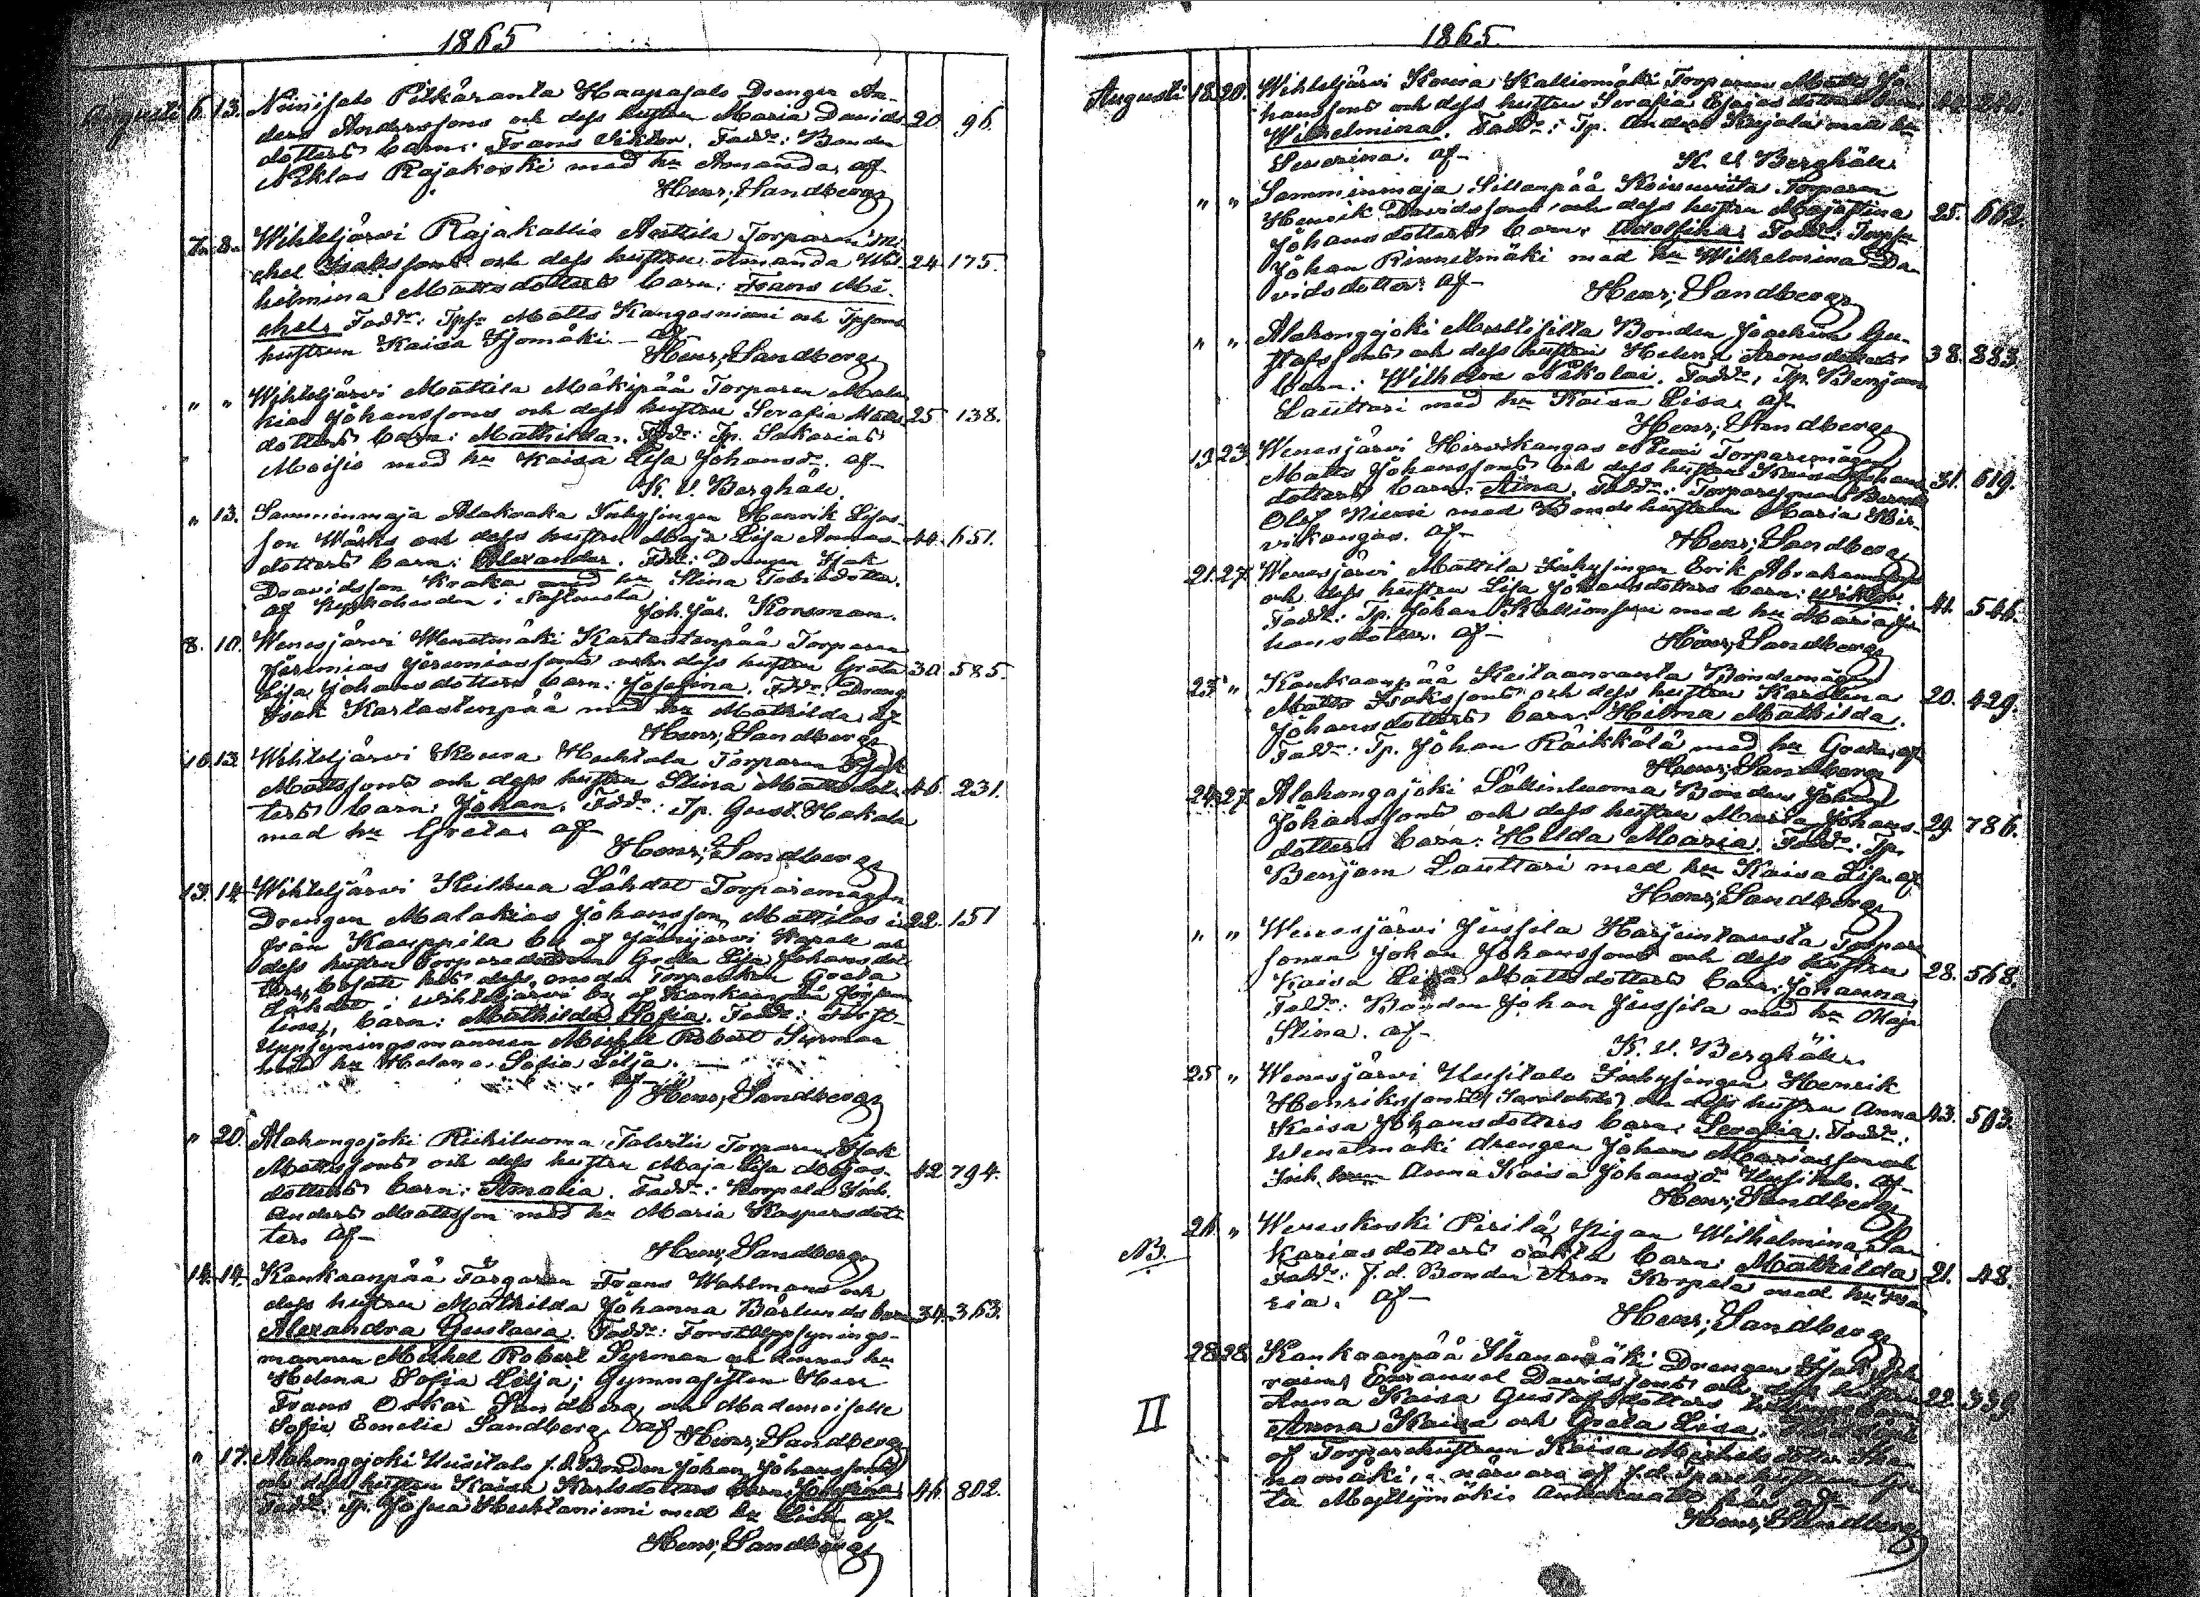 1865
Augusti 6. 13. Niinisalo Pitkäranta Haapasalo Drengen An-
ders Anderssons och dess hustru Maria Davids- 20. 96.
dotters barn: Frans Viktor. Fadd: Bonden
Niklas Rajakoski med hu Amanda, af
Henr; Sandberg
7. 8. Wihteljärvi Rajakallio Anttila Torparen Mi-
chel Isakssons och dess hustru Amanda Wil- 24. 175.
helmina Mattsdotters barn: Frans Mi-
chel. Fadd: Matts Kangasniemi och
hustrun Kaisa - af
Henr; Sandberg
" " Wihteljärvi Mattila Mäkipää Torparen Mala-
kias Johanssons och dess hustru Serafia Matts- 25 138.
dotters barn: Mathilda. Fadd: Tp. Sakarias
Moisio med hu Kaisa Lisa Johansd. af
K. U. Berghäll.
" 13. Samminmaja Alakraka Inhysingen Henrik
son och dess hustru Maja Lisa Annas- 44. 651.
dotters barn: Alexander. Fadd: Drengen Isak
Davidsson Kraka med hu Stina Tobiasdotter.
af Kyrkoherden i
Joh. Konsman.
8. 10. Wenesjärvi Wenetmäki Kartastenpää Torparen
Jeremias Jeremiassons och dess hustru Greta 30. 585.
Lisa Johansdotters barn: Josefina. Fadd: Dreng
Isak Kartastenpää med hu Mathilda, af
Henr; Sandberg
10. 13. Wihteljärvi Kouva Huhtala Torparen Isak
Mattssons och dess hustru Stina Mattsdot- 46. 231.
ters barn: Johan. Fadd: Tp. Gust. Hakala
med hu Greta, af
Henr; Sandberg
13. 14. Wihteljärvi Huhkua Lähdet Torparemågen
Drengen Malakias Johansson Mattilas i 22. 151
från Kauppila by af Jämijärvi Kapell och
dess hustru Torparedottren Greta Lisa Johansdot-
ters, boſatt hos dess moder Torpenkan Greta
Lähdet i Wihteljärvi by af Kankaanpää
barn: Mathilda Sofia. Fadd: Forst-
Uppsyningsmannen Michel Robert Syrman
med hu Helena Sofia Lilja. -
af
Henr; Sandberg
" 20. Alahongojoki Riihiluoma Torparen Isak
Mattssons och dess hustru Maja Lisa 42 794.
dotters barn: Amalia. Fadd: Korpela Inh.
Anders Mattsson med hu Maria Kaspersdot-
ter. af
Henr; Sandberg
14. 14. Kankaanpää Färgaren Frans Wahlmans och
dess hustru Mathilda Johanna Bärlunds barn 34. 363.
Alexandra Gustava. Fadd: Forst Uppsynings-
mannen Michel Robert Syrman och hu
Helena Sofia Lilja; Gymnasisten Herr
Frans Oskar Sandberg och Mademoiselle
Sofie Emelie Sandberg. af Henr; Sandberg
" 17. Alahongojoki Uusitalo f.d. Bonden Johan Johanssons
och dess hustru Kaisa Karlsdotters barn: 46. 802.
Fadd: Tp. Josua Huhtaniemi med hu Lisa. af
Henr; Sandberg
1865.
Augusti 18. 20. Wihteljärvi Kouva Kalliomäki Torparen Matts Jo-
hanssons och dess hustru Serafia Esajasdotters barn
Wilhelmina. Fadd: Tp. Anders Kujala med hu
Severina. af
K. U. Berghäll.
" " Samminmaja Sillanpää Torparen
Henrik Davidssons och dess hustru Majastina 25. 662.
Johansdotters barn: Adolfina. Fadd:
Johan Rinnetmäki med hu Wilhelmina Da-
vidsdotter. af
Henr; Sandberg
" " Alahongojoki Bonden Joachim Gu-
stafssons och dess hustru Helena Aronsdotters 38. 883.
barn: Wilhelm Nikolai. Fadd: Tp. Benjam
Lauttari med hu Kaisa Lisa, af
Henr; Sandberg
19. 23. Wenesjärvi Hirvikangas Niemi Torparemågen
Matts Johanssons och dess hustru Kaisa Johans- 31. 619.
dotters barn: Aina. Fadd:
Olof Niemi med Bondehustrun Maria Hir-
vikangas. af
Henr; Sandberg
21. 27. Wenesjärvi Mattila Inhysingen Erik Abrahamssons
och dess hustru Lisa Johansdotters barn: Wiktor. 41. 546.
Fadd: Tp. Johan med hu Maria Jo-
hansdotter. af
Henr; Sandberg
23 " Kankaanpää Keitaanranta Bondemågen
Matts Isakssons och dess hustru Karolina 20. 429.
Johansdotters barn: Hilma Mathilda.
Fadd: Tp. Johan Räikkälä med hu Greta, af
Henr; Sandberg
24. 27. Alahongojoki Sällinluoma Bonden Johan
Johanssons och dess hustru Maria Johans- 29. 786.
dotters barn: Hilda Maria. Fadd: Tp.
Benjam Lauttari med hu Kaisa Lisa, af
Henr; Sandberg
" " Wenesjärvi Jussila Harjuntausta Torpare
sonen Johan Johanssons och dess hustru 28. 568.
Kaisa Lisa Mattsdotters barn: Johanna.
Fadd: Bonden Johan Jussila med hu Maja
Stina. af
K. U. Berghäll.
25 " Wenesjärvi Uusitalo Inhysingen Henrik
Henrikssons och dess hustru Anna 43. 593.
Kaisa Johansdotters barn: Serafia. Fadd:
Wenetmäki drengen Johan och
Inh. Anna Kaisa Johansd. Uusitalo. af
Henr; Sandberg
26. " Weneskoski Pirilä Pigan Wilhelmina Sa-
NB. kariasdotters oäkta barn: Mathilda 21. 48.
Fadd: f.d. Bonden Aron Korpela med hu Ma-
ria. af
Henr; Sandberg
28. 28. Kankaanpää Drengen Isak
Emanuel Davidssons och dess hustru
II Anna Kaisa Gustafsdotters 22. 339.
Anna Kaisa och Greta Lisa.
af Torparehustrun Kaisa Michelsdotter
i närvaro af f.d.
af
Henr; Sandberg